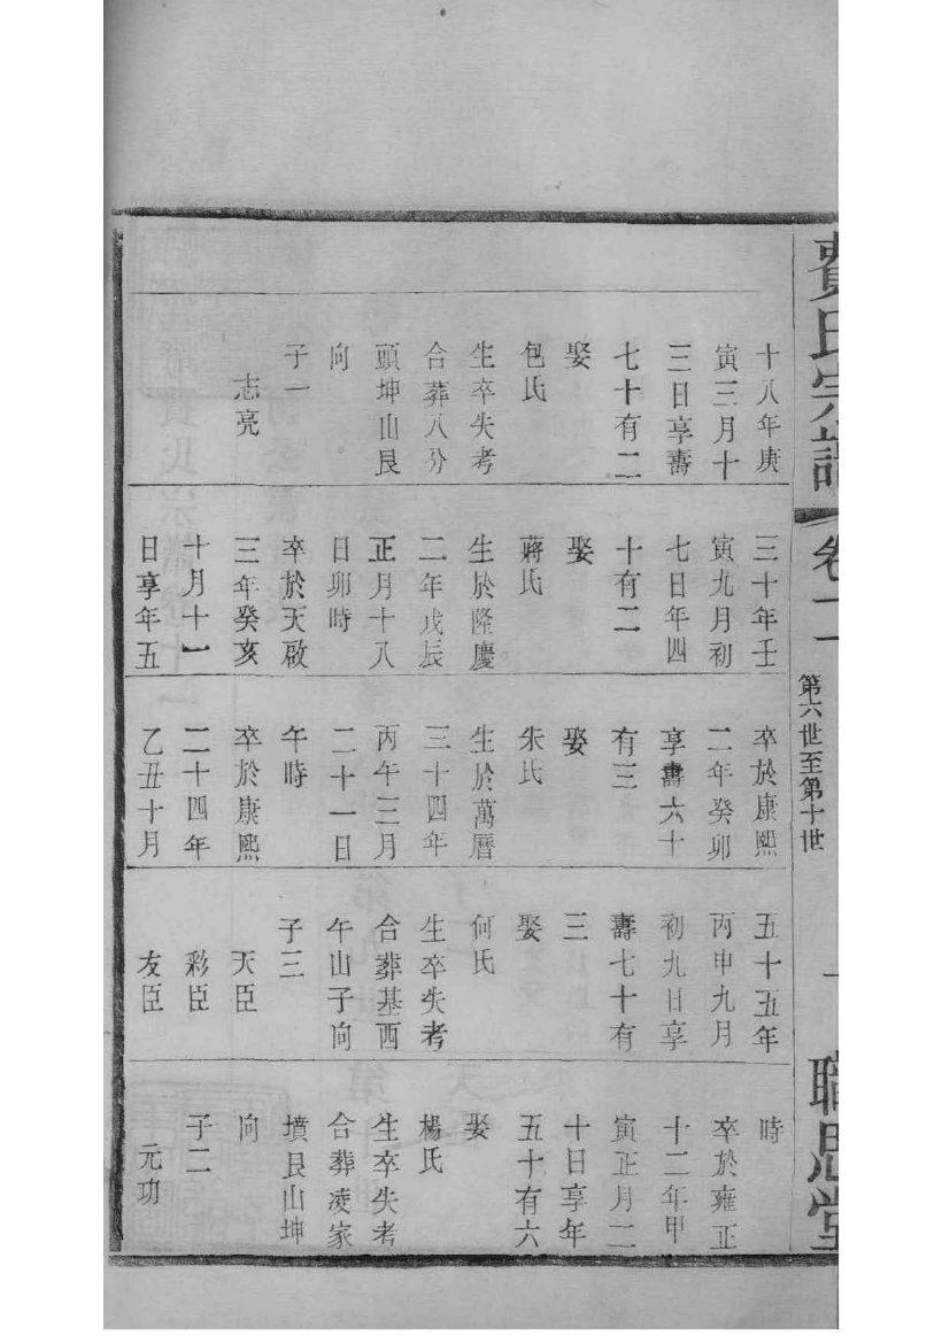 費氏宗譜
卷一
第六世至第十世
一
職思堂
十八年庚
寅三月十
三日享壽
七十有二
娶
包氏
生卒失考
合葬八分
頭坤山艮
向
子一
志亮
三十年壬
寅九月初
七日年四
十有二
娶
蔣氏
生於隆慶
二年戊辰
正月十八
日卯時
卒於天啟
三年癸亥
十月十一
日享年五
卒於康熙
二年癸卯
享壽六十
有三
娶
朱氏
生於萬曆
三十四年
丙午三月
二十一日
午時
卒於康熙
二十四年
乙丑十月
五十五年
丙申九月
初九日享
壽七十有
三
娶
何氏
生卒失考
合葬基西
午山子向
子三
天臣
彩臣
友臣
時
卒於雍正
十二年甲
寅正月二
十日享年
五十有六
娶
楊氏
生卒失考
合葬凌家
墳艮山坤
向
子二
元功